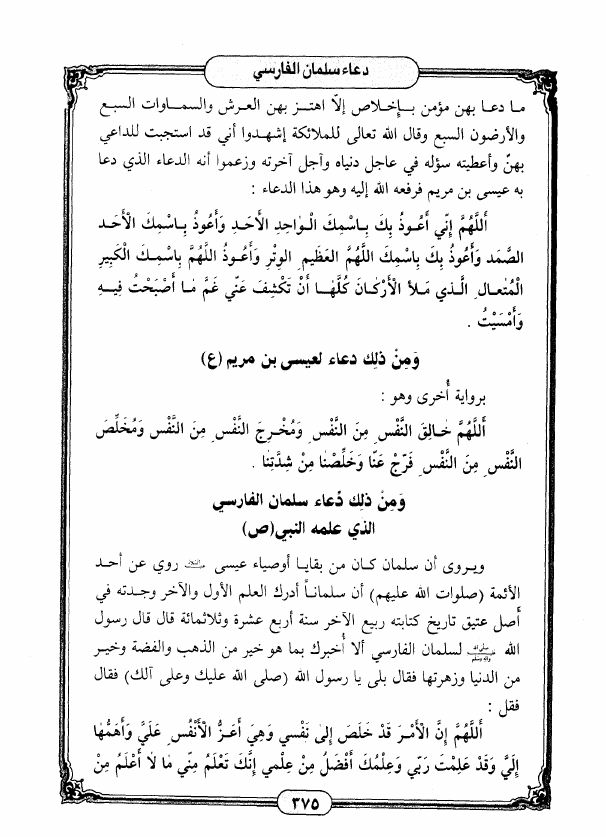 دعاء سلمان الفارسي
ما دعا بهن مؤمن بإخلاص إلّا اهتز بهن العرش والسماوات السبع
والأرضون السبع وقال الله تعالى للملائكة إشهدوا أني قد استجبت للداعي
بهنّ وأعطيته سؤله في عاجل دنياه وآجل آخرته وزعموا أنه الدعاء الذي دعا
به عيسى بن مريم فرفعه الله إليه وهو هذا الدعاء :
أَللَّهُمَّ إِنِّي أَعُوذُ بِكَ بِاسْمِكَ الْوَاحِدِ الأَحَدِ وَأَعُوذُ بِاسْمِكَ الأَحَدِ
الصَّمَدِ وَأَعُوذُ بِكَ بِاسْمِكَ اللَّهُمَّ العَظِيمِ الوِتْرِ وَأَعُوذُ اللَّهُمَّ بِاسْمِكَ الْكَبِيرِ
الْمُتَعالِ الَّذي مَلأَ الأَرْكانَ كُلَّها أَنْ تَكْشِفَ عَنِّي غَمَّ ما أَصْبَحْتُ فِيهِ
وَأَمْسَيْتُ .
وَمِنْ ذلِك دعاء لعيسى بن مريم (ع)
برواية أُخرى وهو :
أَللَّهُمَّ خالِقَ النَّفْسِ مِنَ النَّفْسِ وَمُخْرِجَ النَّفْسِ مِنَ النَّفْسِ وَمُخَلِّصَ
النَّفْسِ مِنَ النَّفْسِ فَرِّجْ عَنّا وَخَلِّصْنا مِنْ شِدَّتِنا .
وَمِنْ ذلِك دُعاء سلمان الفارسي
الذي علمه النبي (ص)
ويروى أن سلمان كان من بقايا أوصياء عيسى روي عن أحد
الأئمة (صلوات الله عليهم) أن سلماناً أدرك العلم الأول والآخر وجدته في
أصل عتيق تاريخ كتابته ربيع الآخر سنة أربع عشرة وثلاثمائة قال قال رسول
الله ﷺ لسلمان الفارسي ألا أُخبرك بما هو خير من الذهب والفضة وخير
من الدنيا وزهرتها فقال بلى يا رسول الله (صلى الله عليك وعلى آلك) فقال
فقل :
أَللَّهُمَّ إِنَّ الْأَمْرَ قَدْ خَلَصَ إِلى نَفْسي وَهِيَ أَعَزُّ الْأَنْفُسِ عَلَيَّ وَأَهَمُّها
إِلَيَّ وَقَدْ عَلِمْتَ رَبِّي وَعِلْمُكَ أَفْضَلُ مِنْ عِلْمِي إِنَّكَ تَعْلَمُ مِنِّي ما لا أَعْلَمُ مِنْ
٣٧٥